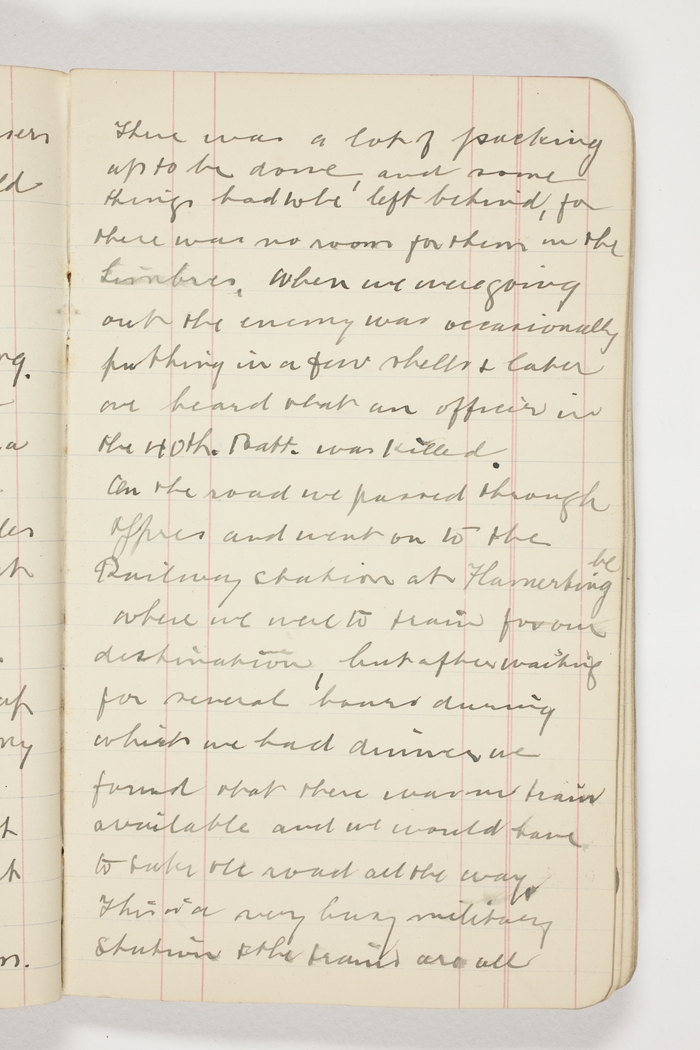 There was a lot of packing
up to be done, and some
things had to be left behind, for
there was no room for them in the
limbres. When we were going
out the enemy was occasionally
putting in a few shells & later
we heard that an officer in
the 40th. Batt. was killed.
On the road we passed through
Ypres and went on to the
be
Railway station at Flamerting
where we were to train for our
destination, but after waiting
for several hours during
which we had dinner, we
found that there was no train
available and we would have
to take the road all the way.
This is a very busy military
station & the trains are all